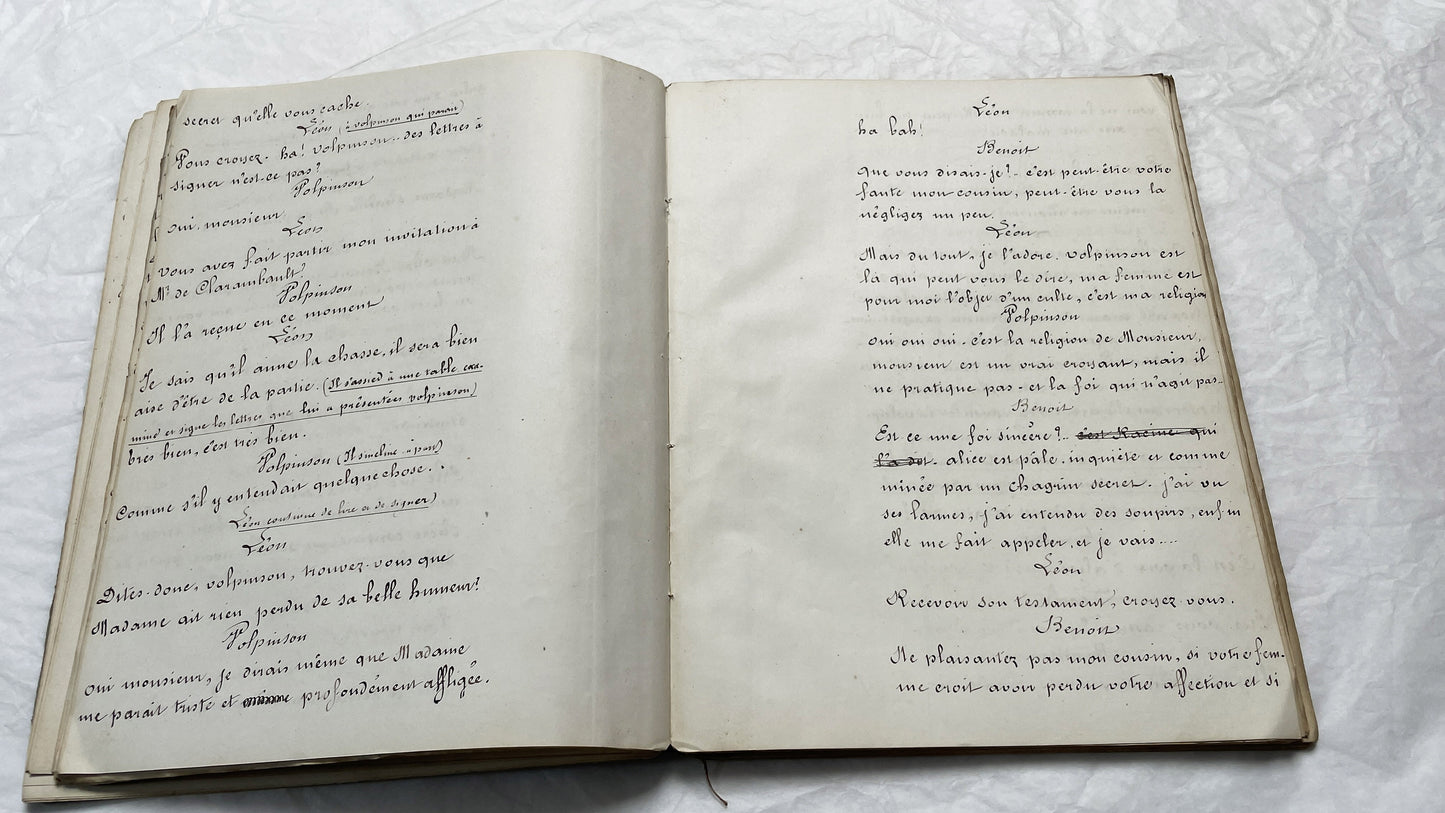 secret qu'elle vous cache.
Léon (à volpinson qui parait)
Vous croyez. ha! volpinson.. des lettres à
signer n'est-ce pas?
Volpinson
oui, monsieur
Léon
vous avez fait partir mon invitation à
Mr de Clarambault?
Volpinson
Il l'a reçue en ce moment
Léon
Je sais qu'il aime la chasse, il sera bien
aise d'être de la partie. (Il s'assied à une table exa-
mine et signe les lettres que lui a présentées volpinson)
bres bien, c'est très bien.
Volpinson (Il s'incline à part)
Comme s'il y entendait quelque chose..
Léon continue de lire et de signer)
Léon
Dites-donc, volpinson, trouvez-vous que
Madame ait rien perdu de sa belle humeur?
Volpinson
oui monsieur, je dirais même que Madame
me parait triste et profondément affligée.
Léon
ha bah!
Benoit
que vous disais-je? - c'est peut-être votre
faute mon cousin, peut-être vous la
négligez un peu.
Léon
Mais du tout, je l'adore. volpinson est
là qui peut vous le dire, ma femme est
pour moi l'objet d'un culte, c'est ma religion
Volpinson
oui oui oui. c'est la religion de Monsieur,
monsieur est un vrai croyant, mais il
ne pratique pas - et la foi qui n'agit pas-
Benoit
Est ce une foi sincère?. c'est Racine qui
l'a dit. alice est pâle. inquiète et comme
minée par un chagrin secret. j'ai vu
ses larmes, j'ai entendu des soupirs, enfin
elle me fait appeler, et je vais....
Léon
Recevoir son testament, croyez-vous.
Benoit
Ne plaisantez pas mon cousin, si votre fem-
me croit avoir perdu votre affection et si